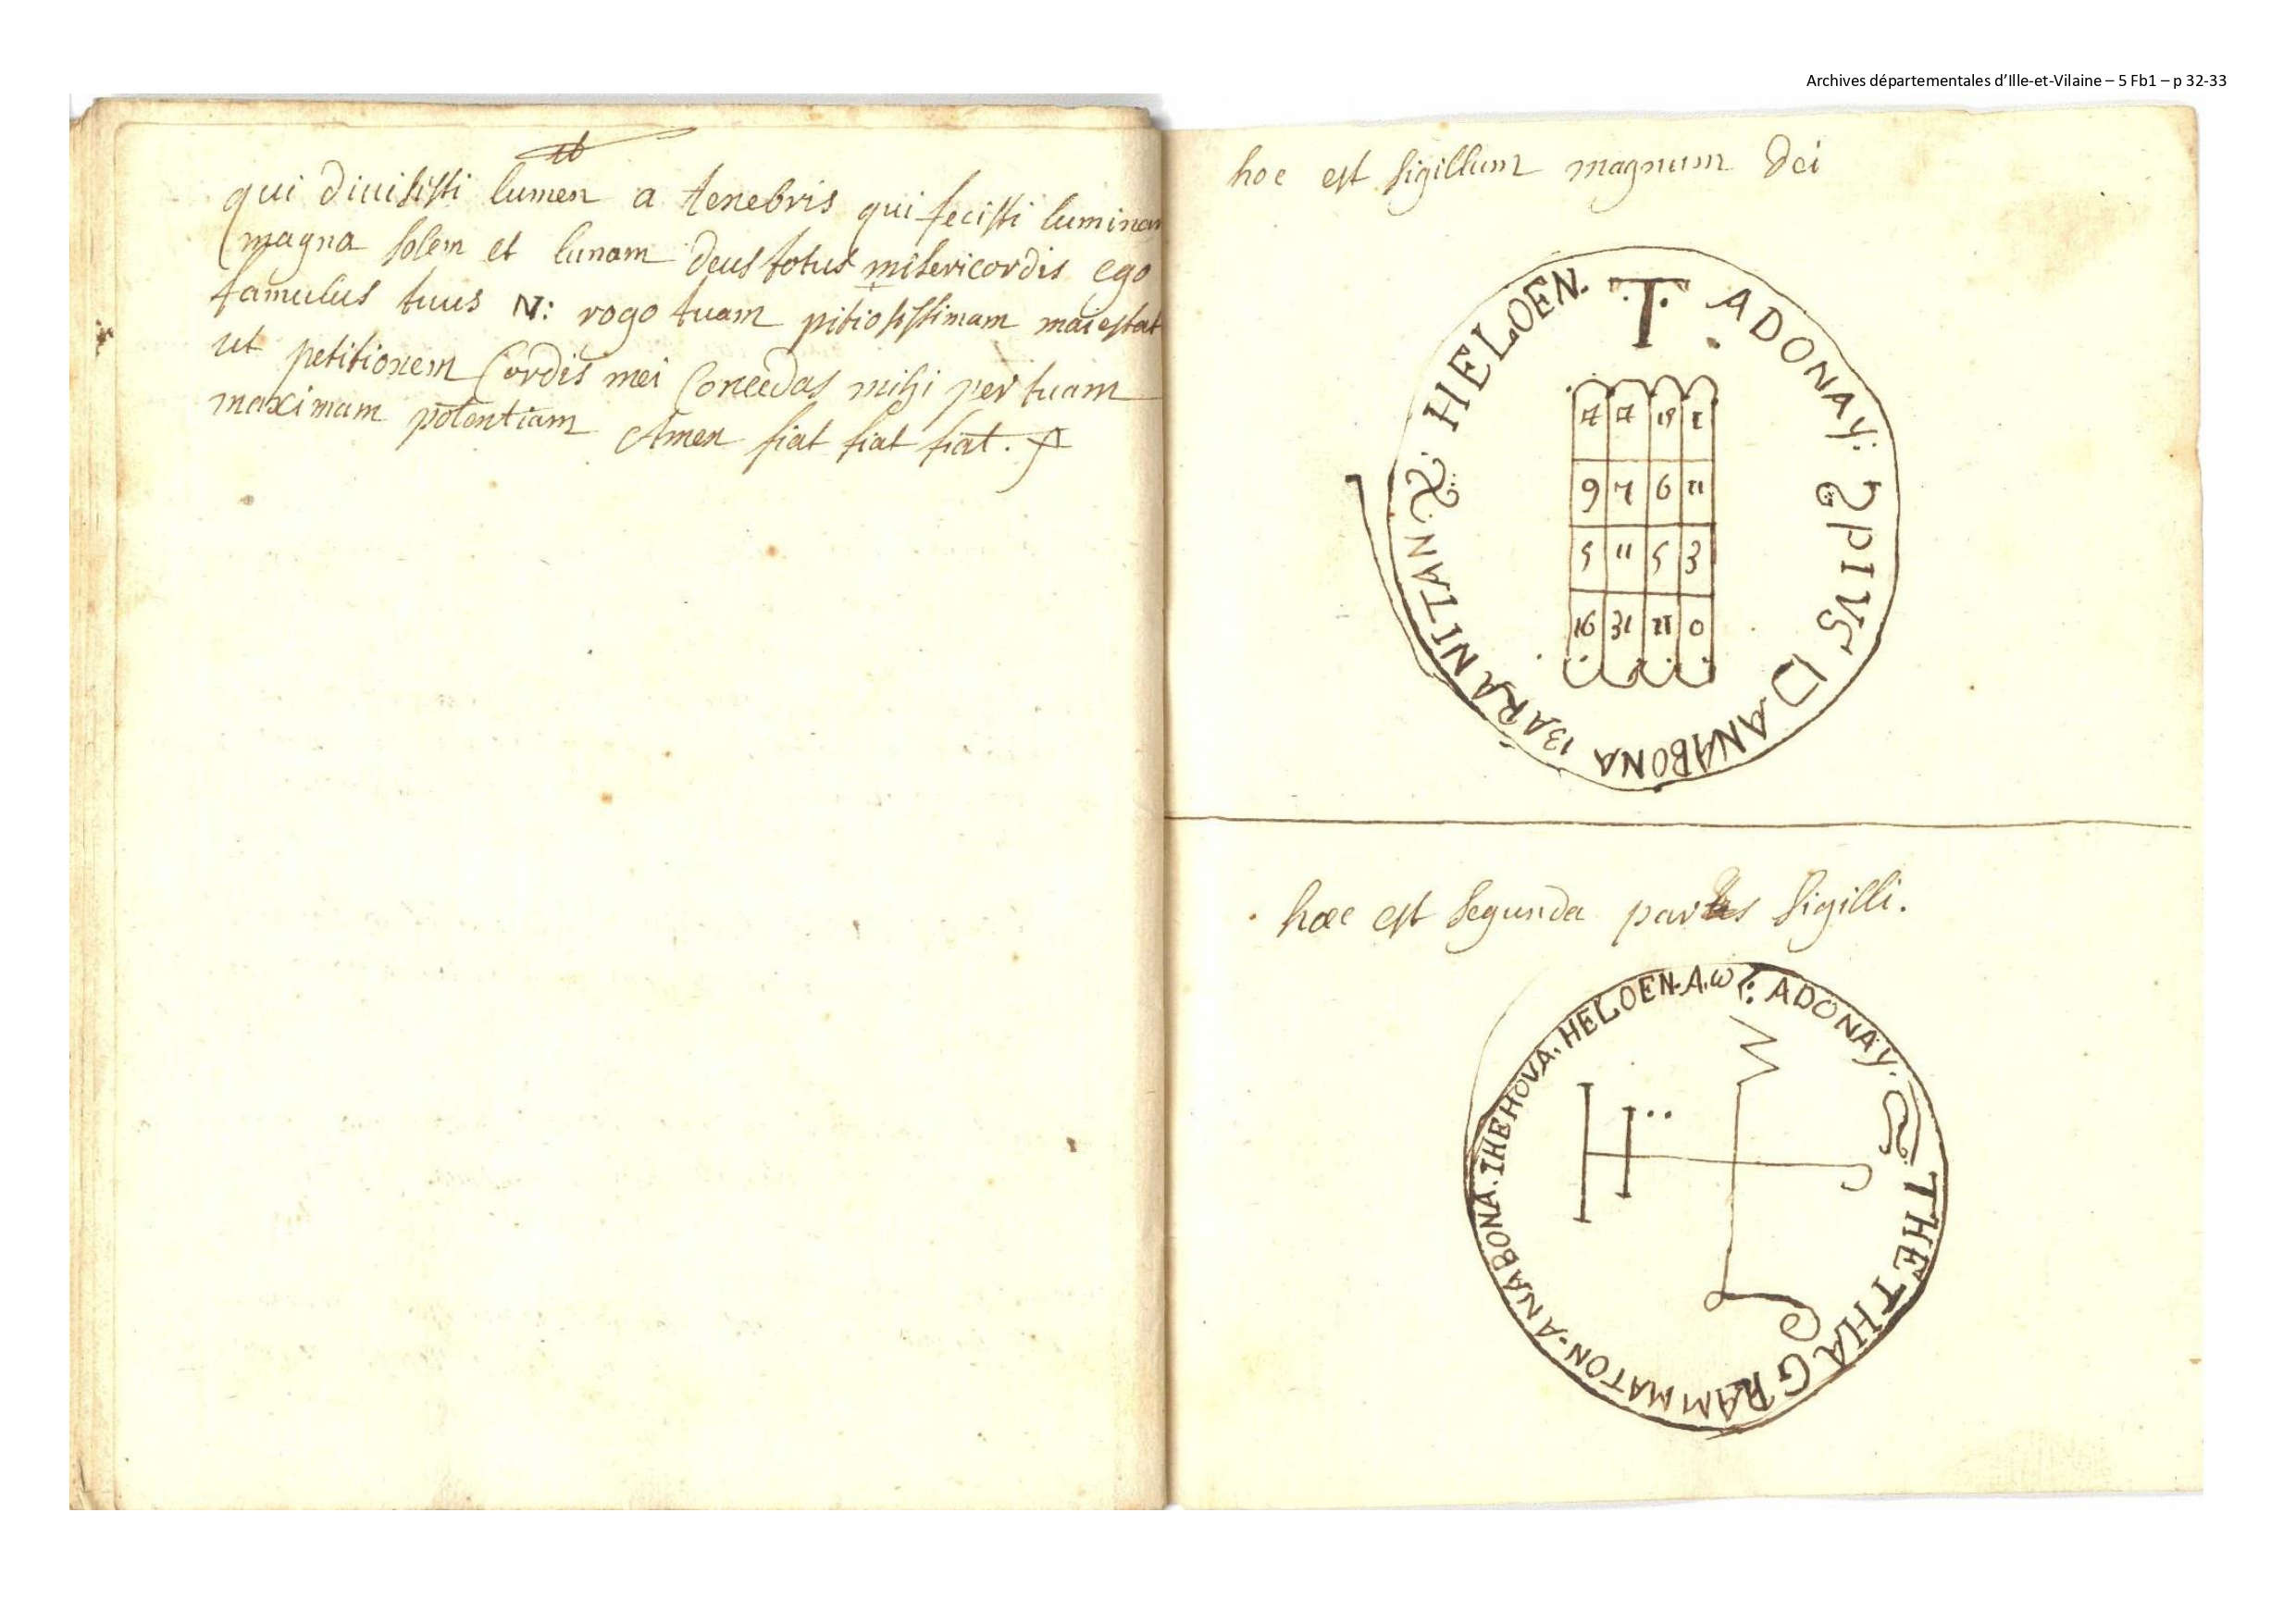 Archives départementales d'Ille-et-Vilaine – 5 Fb1 – p 32-33
qui diuisisti lumen a tenebris qui fecisti luminar
magna solem et lunam deus totus misericordis ego
famulus tuus N: rogo tuam pitiosissimam maiestat
ut petitionem Cordis mei Concedas mihi per tuam
maximam potentiam Amen fiat fiat fiat.
hoc est sigillum magnum dei
HELOEN. T. ADONAY: SPIUS DANABONA BARANITAN.
9 7 6 11
5 11 5 3
16 31 11 0
haec est segunda pars sigilli.
ADONAY. THETHAGRAMMATON. ANABONA. IHEHOVA. HELOEN. A. ω
H